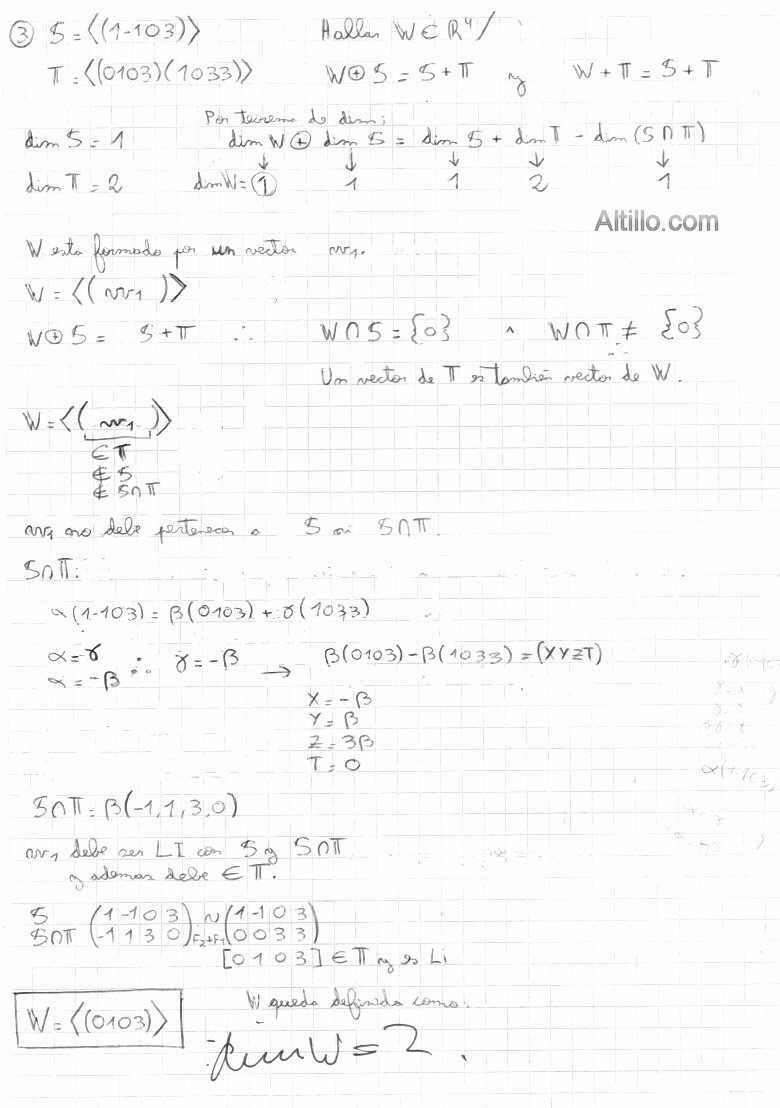 ③ S = ⟨(1-103)⟩ Hallar W ∈ ℝ⁴ /
T = ⟨(0103)(1033)⟩ W⊕S = S+T y W+T = S+T
Por teorema de dim:
dim S = 1 dim W ⊕ dim S = dim S + dim T - dim (S∩T)
↓ ↓ ↓ ↓ ↓
dim T = 2 dim W = ① 1 1 2 1
Altillo.com
W esta formado por un vector w₁.
W = ⟨( w₁ )⟩
W⊕S = S+T ∴ W∩S = {0} ^ W∩T ≠ {0}
Un vector de T es también vector de W.
W = ⟨( w₁ )⟩
∈ T
∉ S
∉ S∩T
w₁ no debe pertenecer a S ni S∩T.
S∩T:
α(1-103) = β(0103) + γ(1033)
α = γ
α = -β ∴ γ = -β → β(0103) - β(1033) = (XYZT)
X = -β
Y = β
Z = 3β
T = 0
S∩T = β(-1,1,3,0)
w₁ debe ser LI con S y S∩T
y ademas debe ∈ T.
S (1 -1 0 3) ~ (1 -1 0 3)
S∩T (-1 1 3 0) F2+F1 (0 0 3 3)
[0 1 0 3] ∈ T y es Li
W queda definida como:
W = ⟨(0103)⟩
dim W = 2.